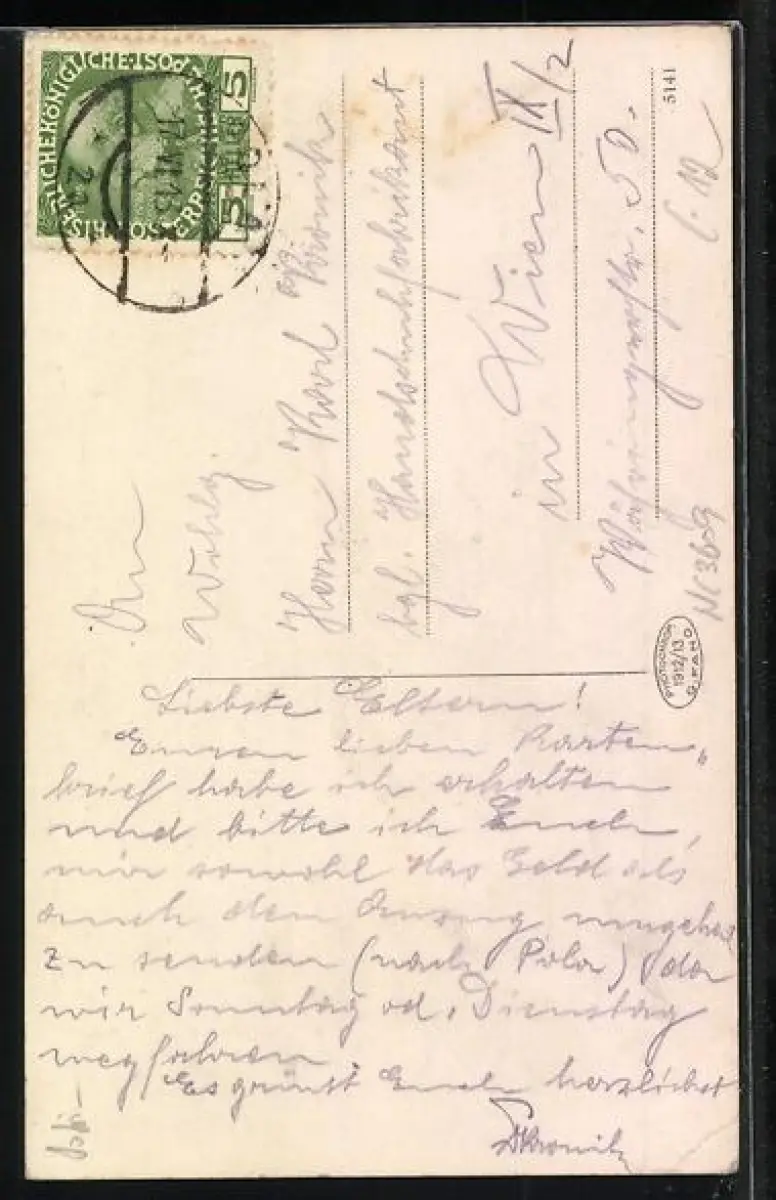 KAISERLICHE KÖNIGLICHE POST
ÖSTERREICH
5 HELLER 5
17.VI.13
5141
An
Wohlg.
Herrn Karl
bgl. Handschuhfabrikant
in Wien IX/2
Währingerstr. 50.
PHOTOCHROM
1912/13
G. FANO
Liebste Eltern!
Euren lieben Karten„
brief habe ich erhalten
und bitte ich Euch,
mir sowohl das Geld als
auch den Anzug umgehend
zu senden (nach Pola) da
wir Sonntag od. Dienstag
wegfahren
Es grüsst Euch herzlichst